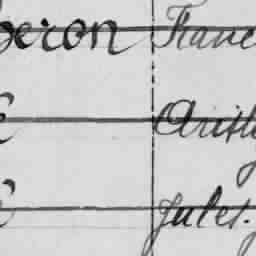 eron Franc
Arist
Jules.